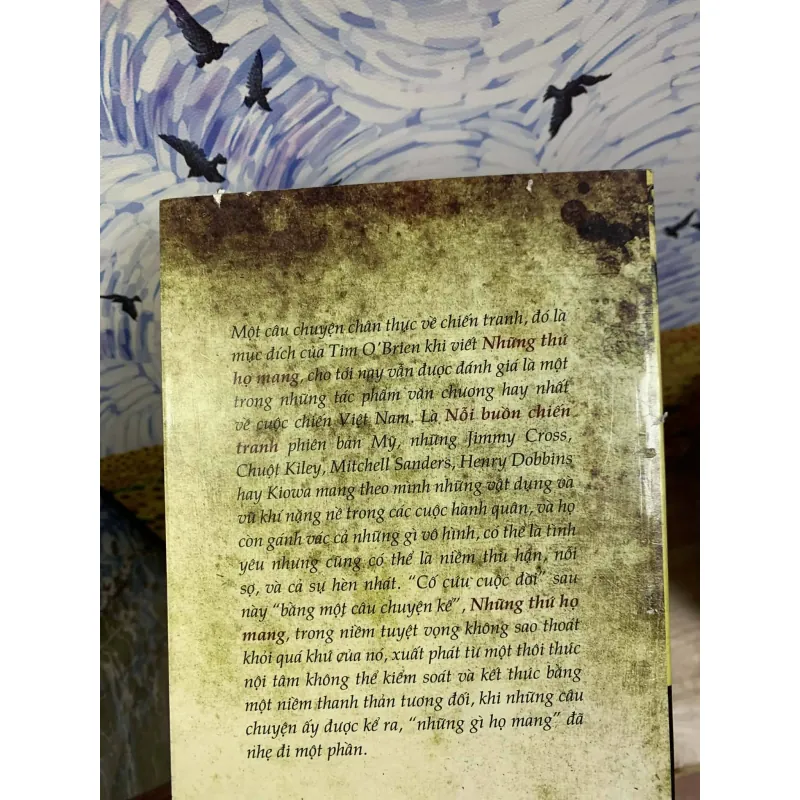 Một câu chuyện chân thực về chiến tranh, đó là
mục đích của Tim O'Brien khi viết Những thứ
họ mang, cho tới nay vẫn được đánh giá là một
trong những tác phẩm văn chương hay nhất
về cuộc chiến Việt Nam. Là Nỗi buồn chiến
tranh phiên bản Mỹ, những Jimmy Cross,
Chuột Kiley, Mitchell Sanders, Henry Dobbins
hay Kiowa mang theo mình những vật dụng và
vũ khí nặng nề trong các cuộc hành quân, và họ
còn gánh vác cả những gì vô hình, có thể là tình
yêu nhưng cũng có thể là niềm thù hận, nỗi
sợ, và cả sự hèn nhát. "Cố cứu cuộc đời" sau
này "bằng một câu chuyện kể", Những thứ họ
mang, trong niềm tuyệt vọng không sao thoát
khỏi quá khứ của nó, xuất phát từ một thôi thúc
nội tâm không thể kiểm soát và kết thúc bằng
một niềm thanh thản tương đối, khi những câu
chuyện ấy được kể ra, "những gì họ mang" đã
nhẹ đi một phần.